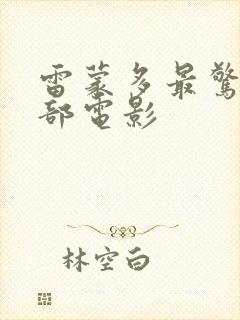 雷蒙多最驚
部電影
林空白